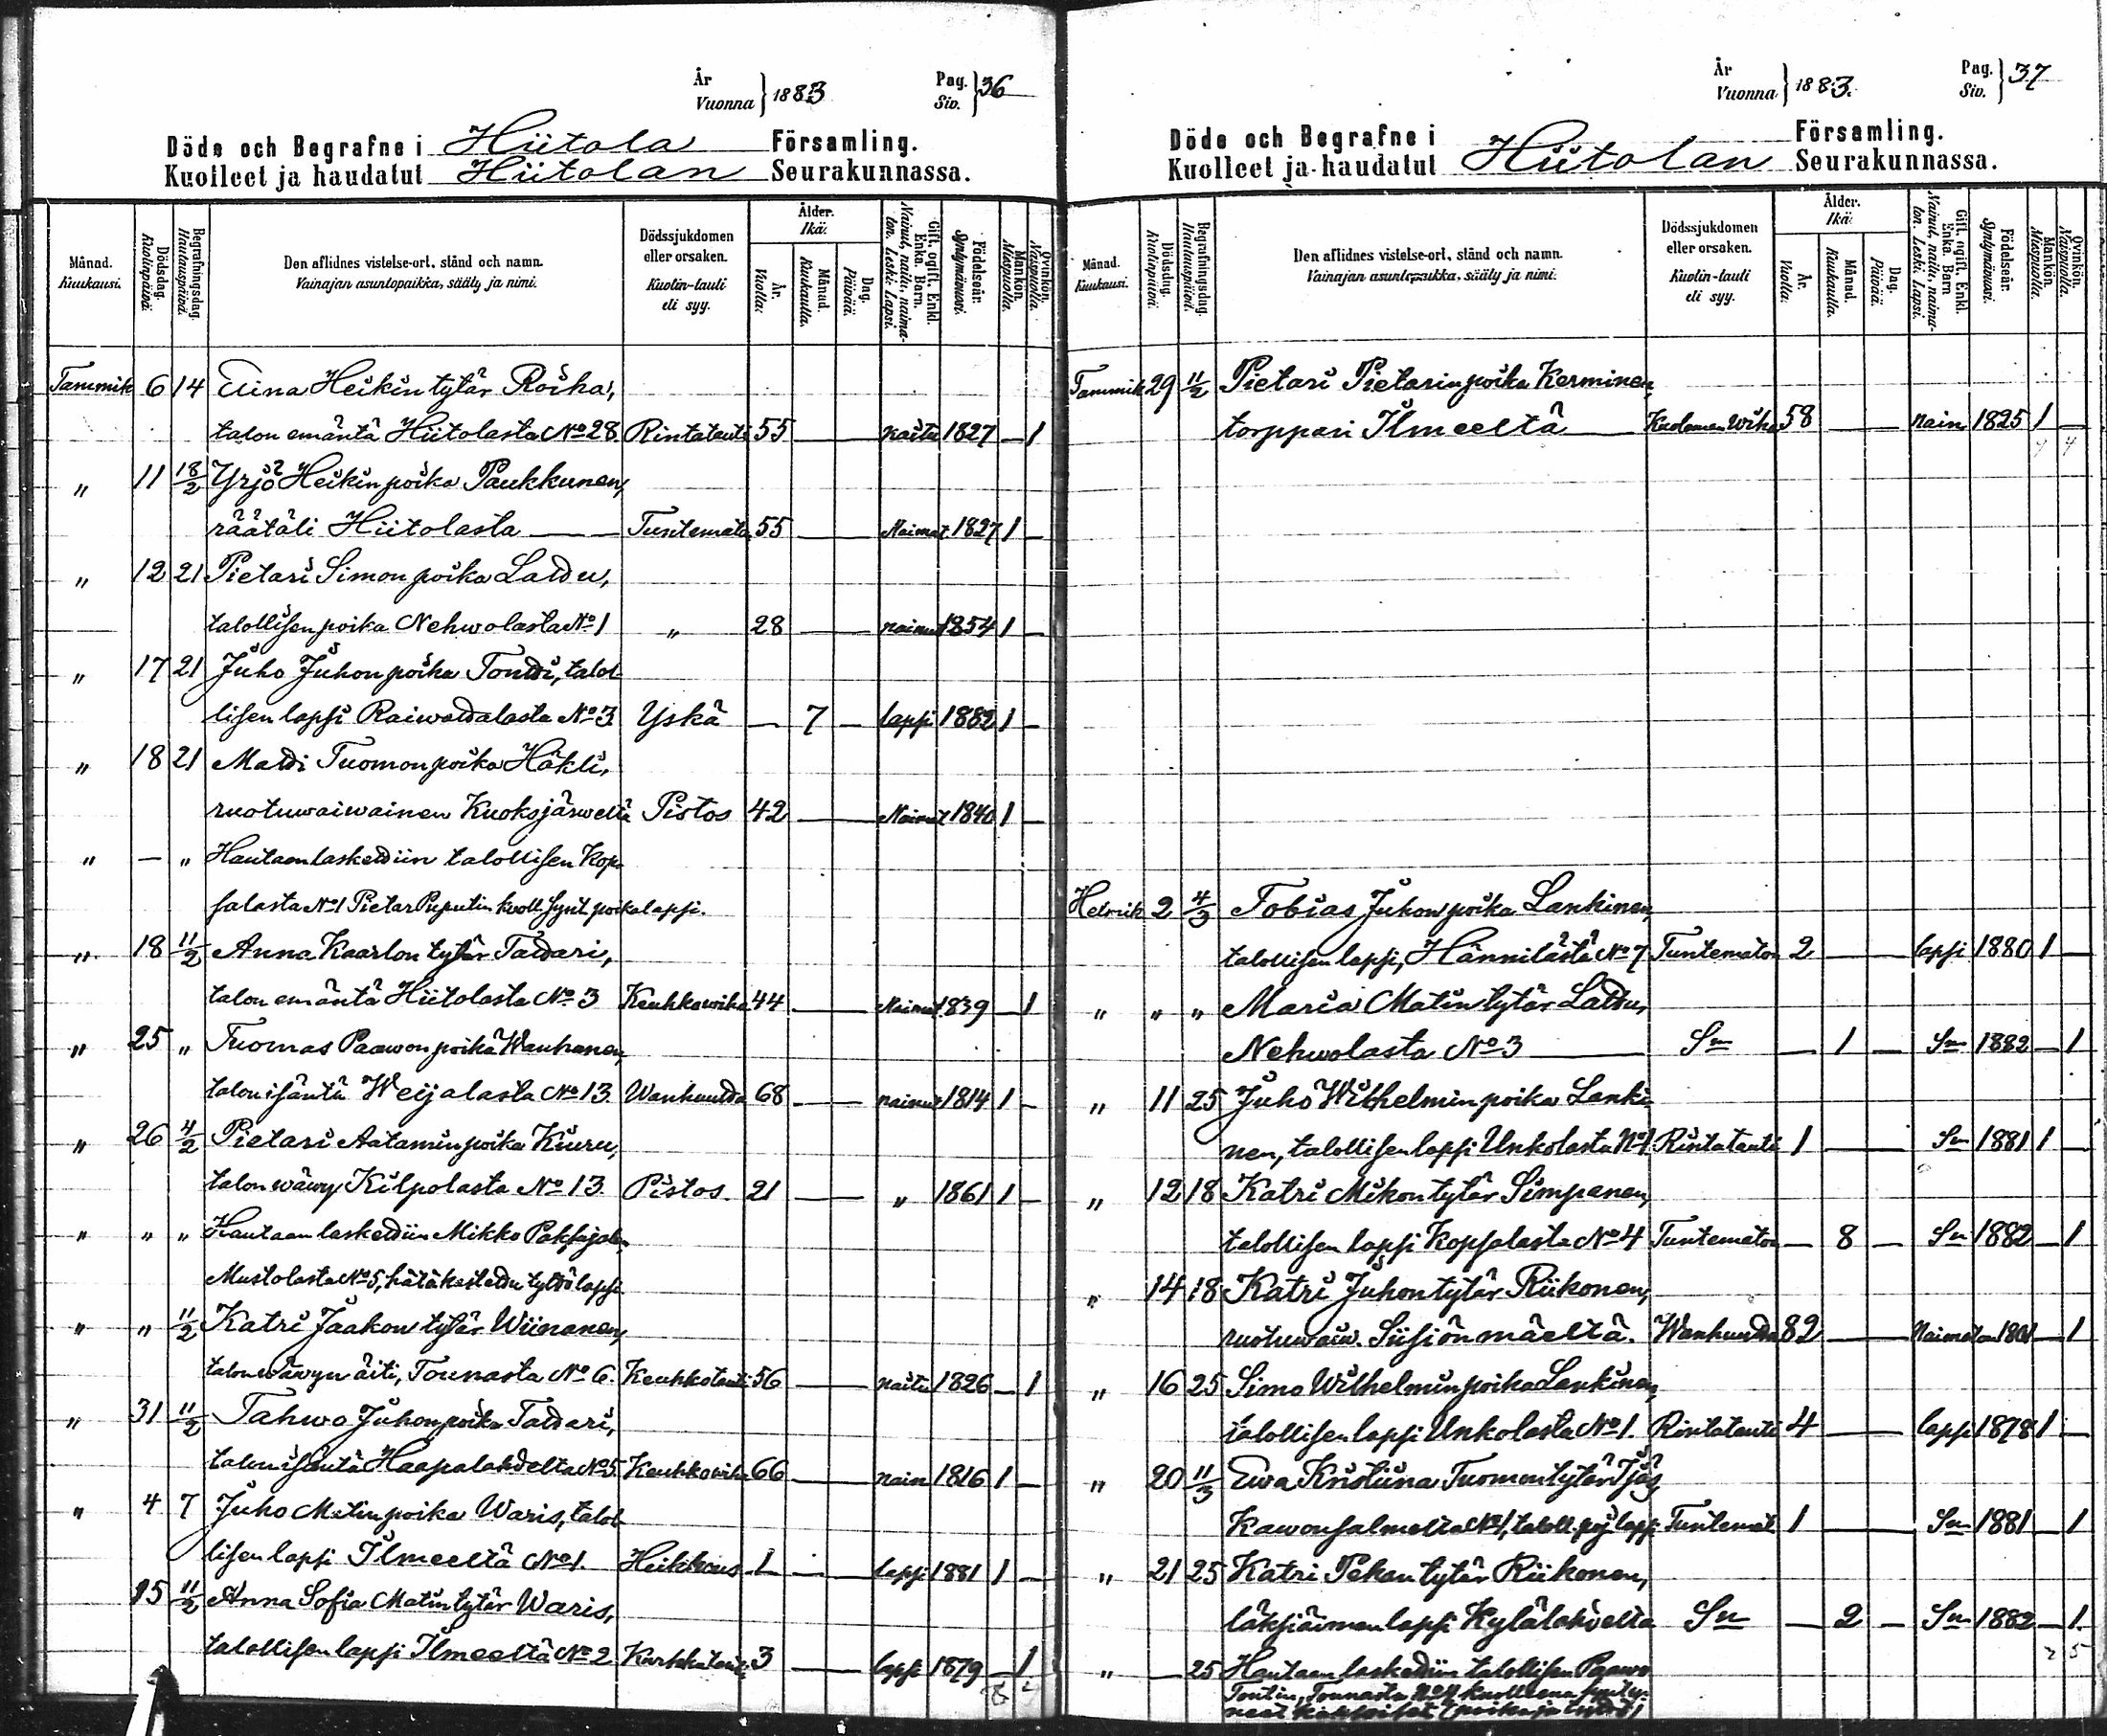 År
Vuonna } 1883
Pag.
Siv. } 36
Döde och Begrafne i Hiitola Församling.
Kuolleet ja haudatut Hiitolan Seurakunnassa.
Månad. Kuukausi.
Dödsdag. Kuolinpäivä.
Begrafningsdag. Hautauspäivä.
Den aflidnes vistelse-ort, stånd och namn.
Vainajan asuntopaikka, sääty ja nimi.
Dödssjukdomen eller orsaken.
Kuolin-tauti eli syy.
Ålder. Ikä.
År. Vuotta.
Månad. Kuukautta.
Dag. Päivää.
Gift, ogift, Enkl. Enka. Barn.
Nainut, naitu, naimaton. Leski. Lapsi.
Födelseår. Syntymävuosi.
Mankön. Miespuolia.
Qvinkön. Naispuolia.
Tammik 6 14 Elina Heikin tytär Roiha,
talon emäntä Hiitolasta No 28 Rintatauti 55 — naitu 1827 — 1
" 11 18/2 Yrjö Heikin poika Paukkunen,
räätäli Hiitolasta — Tuntemato 55 — Naimat 1827 1 —
" 12 21 Pietari Simon poika Lattu,
talollisen poika Nehwolasta No 1 " 28 — nainut 1854 1 —
" 17 21 Juho Juhon poika Tontti, talol-
lisen lapsi Raiwattalasta No 3 Yskä — 7 — lapsi 1882 1 —
" 18 21 Matti Tuomon poika Häkli,
ruotuwaiwainen Kuoksjärweltä Pistos 42 — Nainut 1840 1 —
" — " Hautaan laskettiin talollisen Kop-
salasta No 1 Pietar Puputin kuoll. synt. poikalapsi.
" 18 11/2 Anna Kaarlon tytär Tattari,
talon emäntä Hiitolasta No 3 Keuhkowika 44 — Nainut 1839 — 1
" 25 " Tuomas Paawon poika Wanhanen,
talon isäntä Weijalasta No 13. Wanhuutta 68 — nainut 1814 1 —
" 26 4/2 Pietari Aatamin poika Kiuru,
talon wäwy Kilpolasta No 13. Pistos. 21 — " 1861 1 —
" " " Hautaan laskettiin Mikko Paksujalan
Mustolasta No 5, hätäkastettu tyttölapsi
" " 11/2 Katri Jaakon tytär Wiinanen,
talon wäwyn äiti, Tounasta No 6. Keuhkotauti 56 — naitu 1826 — 1
" 31 11/2 Tahwo Juhon poika Tattari,
talon isäntä Haapalahdelta No 5. Keuhkowika 66 — nain 1816 1 —
" 4 7 Juho Matin poika Waris, talol-
lisen lapsi Ilmeeltä No 1. Heikkous 1 — lapsi 1881 1 —
15 11/2 Anna Sofia Matin tytär Waris,
talollisen lapsi Ilmeeltä No 2 3 — lapsi 1879 — 1
År
Vuonna } 1883.
Pag.
Siv. } 37
Döde och Begrafne i
Kuolleet ja haudatut Hiitolan Församling.
Seurakunnassa.
Månad. Kuukausi.
Dödsdag. Kuolinpäivä.
Begrafningsdag. Hautauspäivä.
Den aflidnes vistelse-ort, stånd och namn.
Vainajan asuntopaikka, sääty ja nimi.
Dödssjukdomen eller orsaken.
Kuolin-tauti eli syy.
Ålder. Ikä.
År. Vuotta.
Månad. Kuukautta.
Dag. Päivää.
Gift, ogift, Enkl. Enka. Barn
Nainut, naitu, naimaton. Leski. Lapsi.
Födelseår. Syntymävuosi.
Mankön. Miespuolia.
Qvinkön. Naispuolia.
Tammik 29 11/2 Pietari Pietarin poika Kerminen,
torppari Ilmeeltä — Kuoleman wiha 58 — nain 1825 1 —
Helmik 2 4/3 Tobias Juhon poika Lankinen,
talollisen lapsi, Hännilästä No 7 Tuntematon 2 — lapsi 1880 1 —
" " " Maria Matin tytär Lattu,
Nehwolasta No 3 — Sm — 1 — Sm 1882 — 1
" 11 25 Juho Wilhelmin poika Lanki-
nen, talollisen lapsi Unkolasta No 1. Rintatauti 1 — Sm 1881 1 —
" 12 18 Katri Mikon tytär Simpanen,
talollisen lapsi Kopsalasta No 4 Tuntematon — 8 — Sm 1882 — 1
" 14 18 Katri Juhon tytär Riikonen,
ruotuwaiw. Siisiönmäeltä. Wanhuutta 82 — Naimaton 1801 — 1
" 16 25 Simo Wilhelmin poika Lankinen,
talollisen lapsi Unkolasta No 1. Rintatauti 4 — lapsi 1878 1 —
" 20 11/3 Ewa Kristiina Tuomon tytär Tjäs
Kawonsalmelta No 1, taloll. poj. lapsi Tuntemat 1 — Sm 1881 — 1
" 21 25 Katri Pekan tytär Riikonen,
läksiäimen lapsi Kylälahdelta Sm — 2 — Sm 1882 — 1.
" — 25 Hautaan laskettiin talollisen Paawo
Tontin, Tounasta No 4 kuolleena synty-
neet kaksoiset (poika ja tyttö)